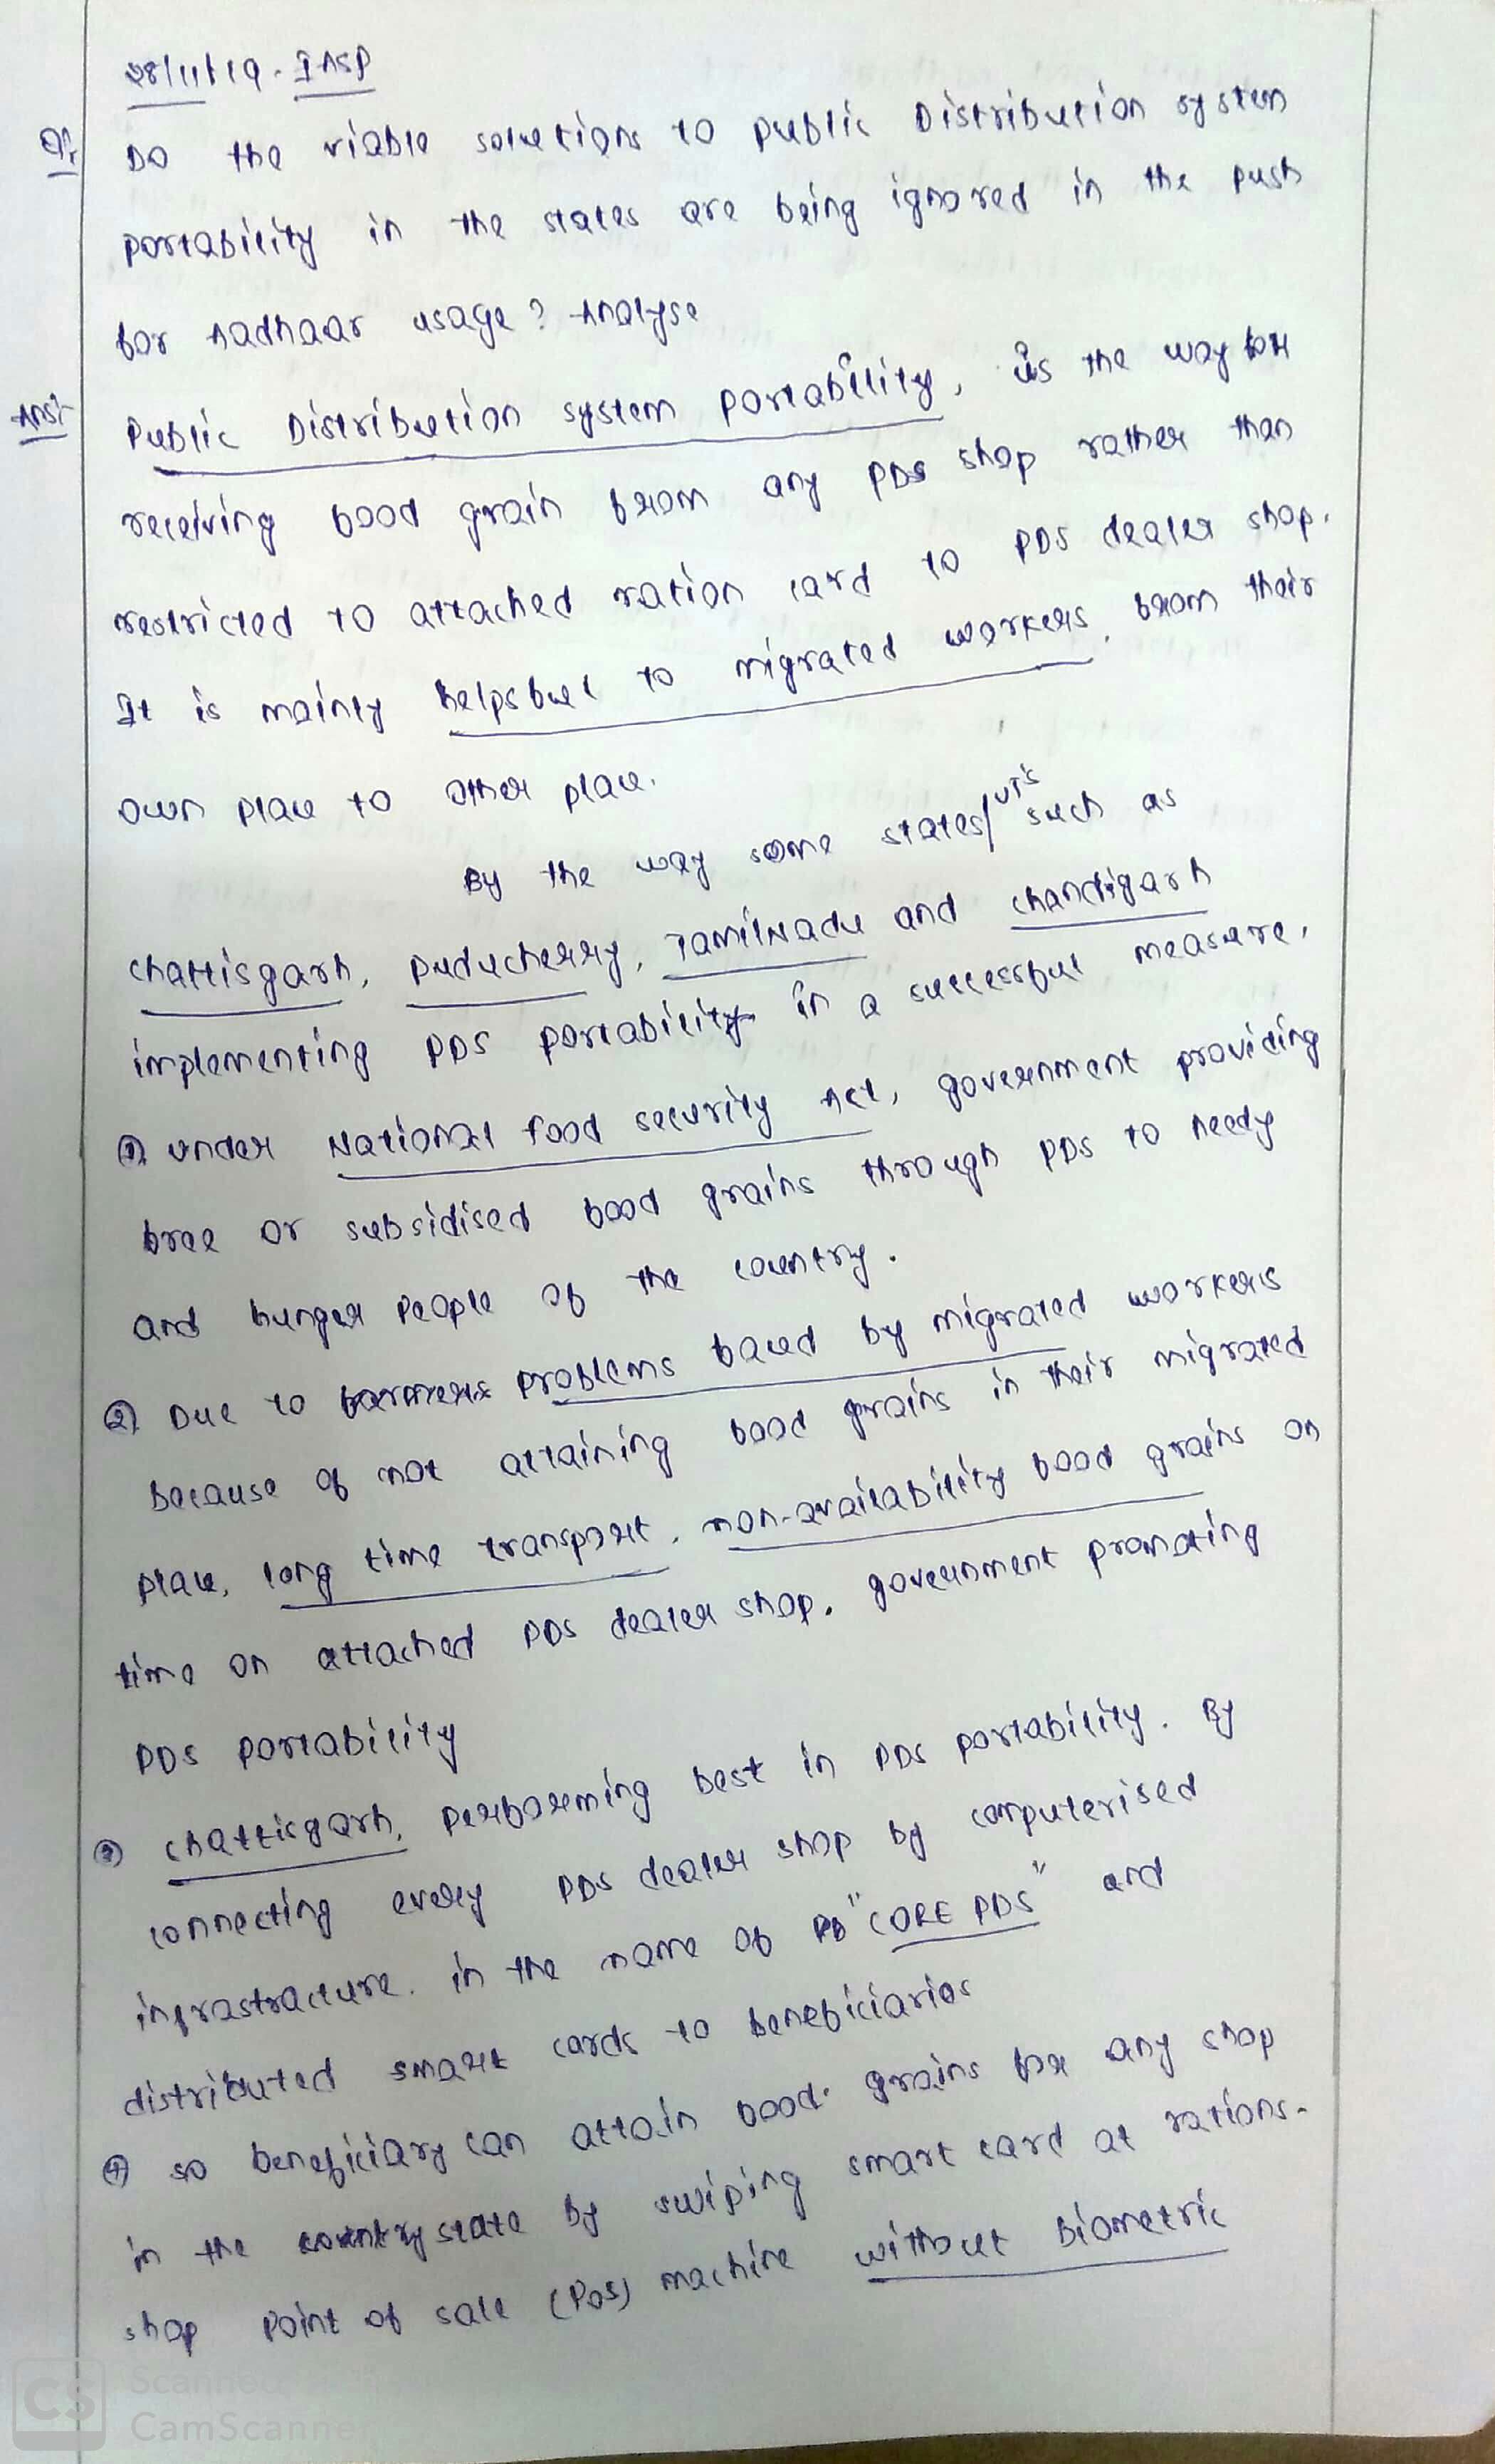 28/11/19 - INSP
Q1 Do the viable solutions to public Distribution system
portability in the states are being ignored in the push
for Aadhaar usage? Analyse
Ans:- Public Distribution system portability, is the way for
receiving food grain from any PDS shop rather than
restricted to attached ration card to PDS dealer shop.
It is mainly helpsful to migrated workers, from their
own place to other place.
By the way some states/UT's such as
chattisgarh, Puducherry, TamilNadu and chandigarh
implementing PDS portability in a successful measure.
① under National Food security Act, government providing
free or subsidised food grains through PDS to needy
and hunger people of the country.
② Due to problems faced by migrated workers
because of not attaining food grains in their migrated
place, long time transport, non-availability food grains on
time on attached PDS dealer shop, government promoting
PDS portability
③ chattisgarh, performing best in PDS portability. By
connecting every PDS dealer shop by computerised
infrastracture. in the name of "CORE PDS" and
distributed smart cards to beneficiaries
④ so beneficiary can attain food grains for any shop
in the country state by swiping smart card at rations-
shop point of sale (PoS) machine without Biometric
CS Scanned
CamScanner